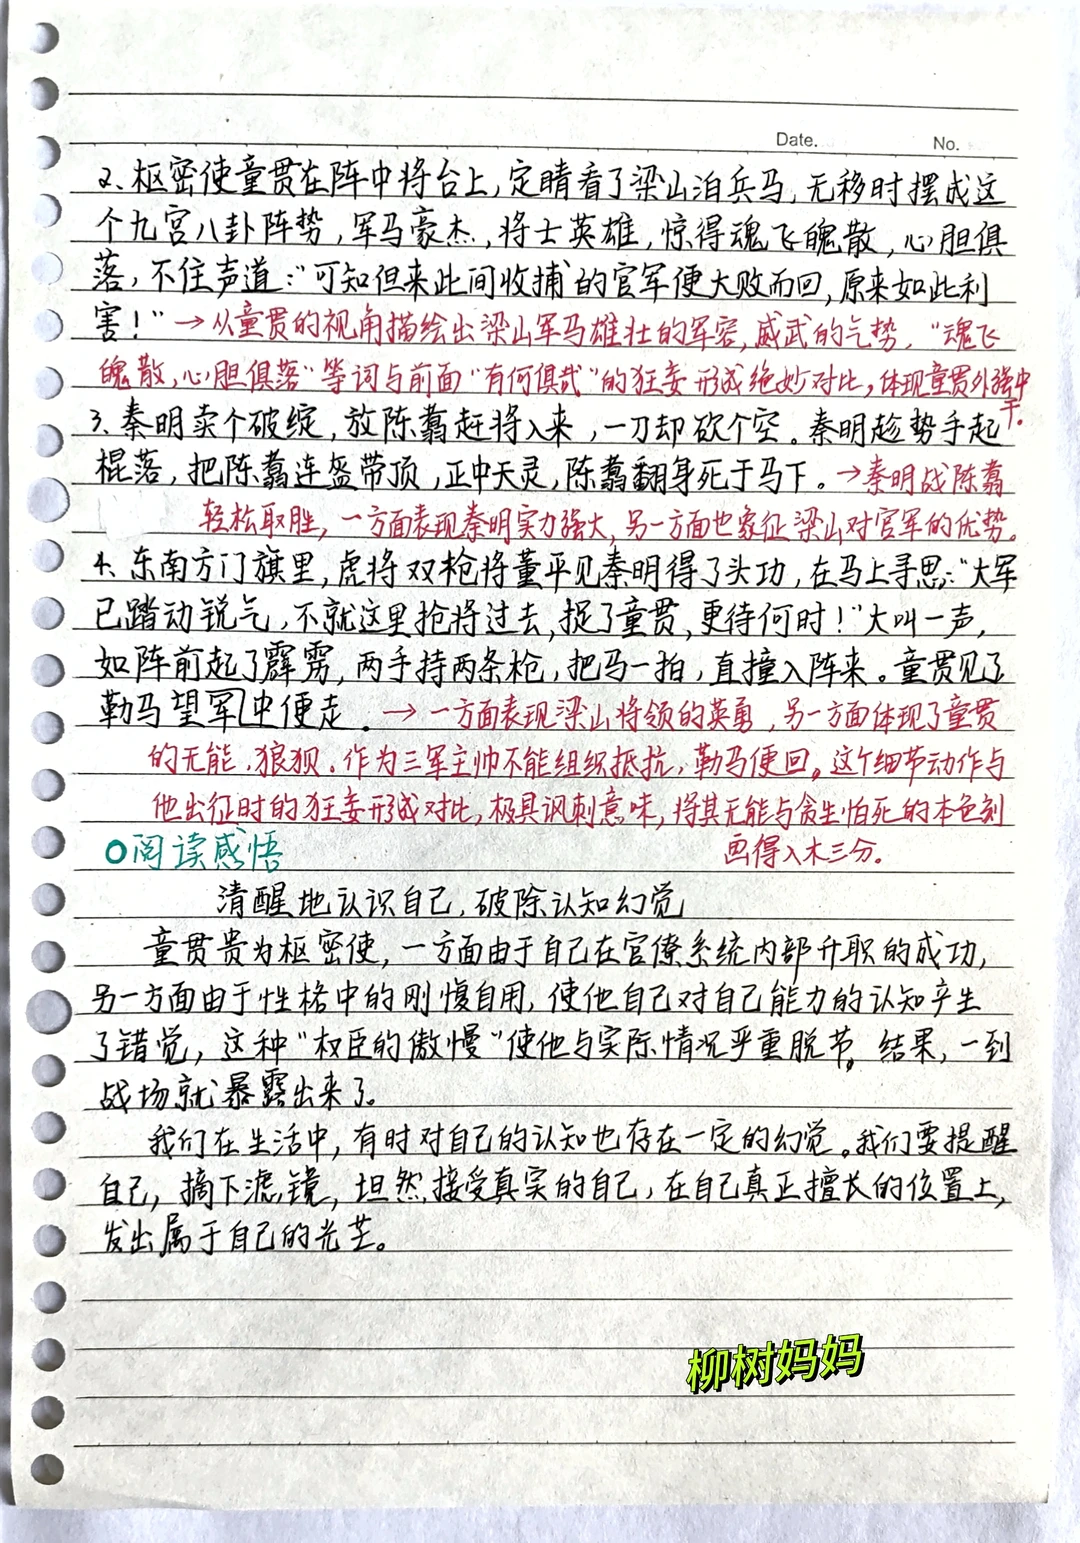 Date.
No.
2、枢密使童贯在阵中将台上,定睛看了梁山泊兵马,无移时摆成这
个九宫八卦阵势,军马豪杰,将士英雄,惊得魂飞魄散,心胆俱
落,不住声道:"可知但来此间收捕的官军便大败而回,原来如此利
害!"→从童贯的视角描绘出梁山军马雄壮的军容,威武的气势。"魂飞
魄散,心胆俱落"等词与前面"有何惧哉"的狂妄形成绝妙对比,体现童贯外强中
干。
3、秦明卖个破绽,放陈翥赶将入来,一刀却砍个空。秦明趁势手起
棍落,把陈翥连盔带顶,正中天灵,陈翥翻身死于马下。→秦明战陈翥
轻松取胜,一方面表现秦明实力强大,另一方面也象征梁山对官军的优势。
4、东南方门旗里,虎将双枪将董平见秦明得了头功,在马上寻思:"大军
已踏动锐气,不就这里抢将过去,捉了童贯,更待何时!"大叫一声,
如阵前起了霹雳,两手持两条枪,把马一拍,直撞入阵来。童贯见了
勒马望军中便走。→一方面表现梁山将领的英勇,另一方面体现了童贯
的无能、狼狈。作为三军主帅不能组织抵抗,勒马便回。这个细节动作与
他出征时的狂妄形成对比,极具讽刺意味,将其无能与贪生怕死的本色刻
画得入木三分。
○阅读感悟
清醒地认识自己,破除认知幻觉
童贯贵为枢密使,一方面由于自己在官僚系统内部升职的成功,
另一方面由于性格中的刚愎自用,使他自己对自己能力的认知产生
了错觉,这种"权臣的傲慢"使他与实际情况严重脱节。结果,一到
战场就暴露出来了。
我们在生活中,有时对自己的认知也存在一定的幻觉。我们要提醒
自己,摘下滤镜,坦然接受真实的自己,在自己真正擅长的位置上,
发出属于自己的光芒。
柳树妈妈